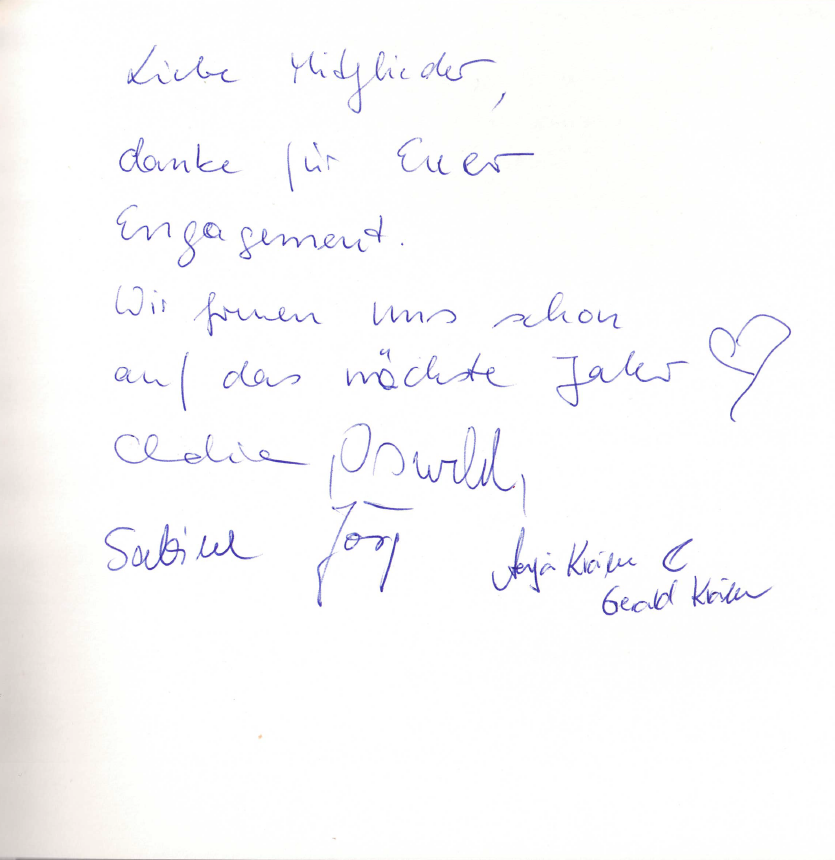 Liebe Mitglieder,
danke für Euer
Engagement.
Wir freuen uns schon
auf das nächste Jahr
Oswald,
Sabine Jörg
Anja
Gerald